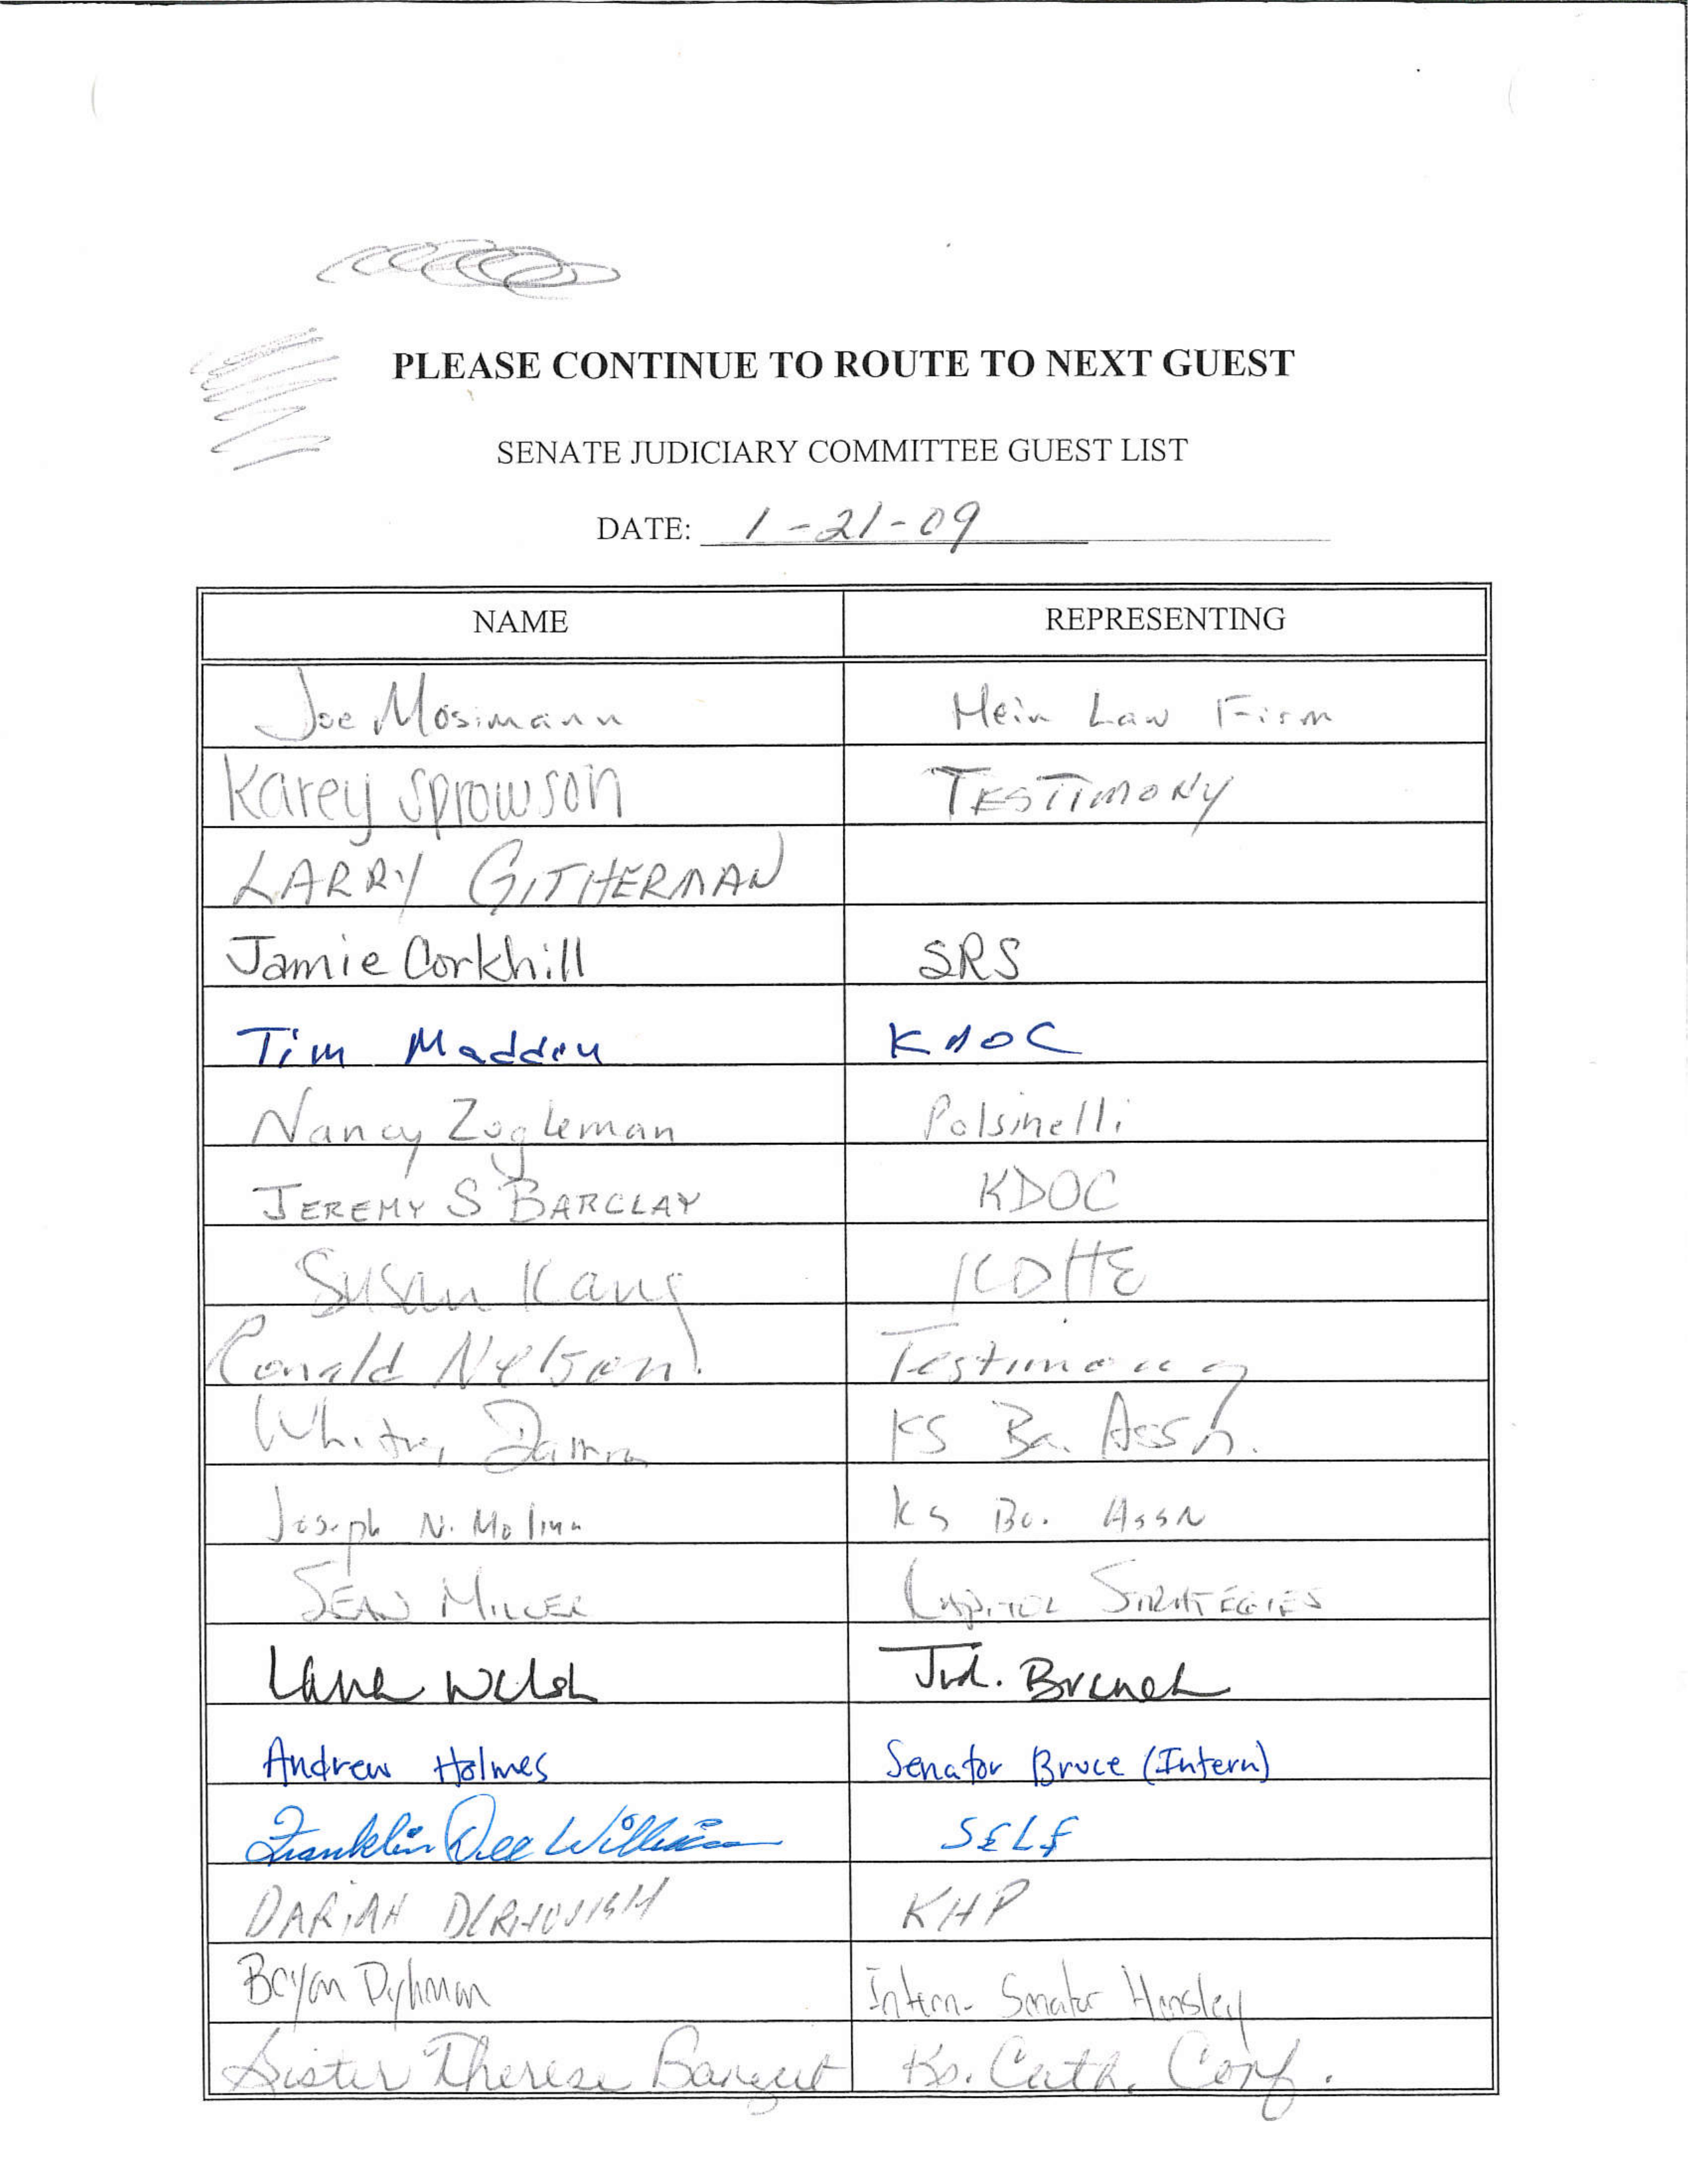 PLEASE CONTINUE TO ROUTE TO NEXT GUEST
SENATE JUDICIARY COMMITTEE GUEST LIST
DATE: 1-21-09
NAME REPRESENTING
Joe Mosimann Hein Law Firm
Karey Sprowson TESTIMONY
LARRY GITHERMAN
Jamie Corkhill SRS
Tim Madden KDOC
Nancy Zogleman Polsinelli
JEREMY S BARCLAY KDOC
Susan Kang KDHE
Ronald Nelson Testimony
Whitney Damron KS Ba. Assn.
Joseph N. Molina KS Ba. Assn
SEAN MILLER CAPITOL STRATEGIES
Welsh Jud. Branch
Andrew Holmes Senator Bruce (Intern)
Franklin Dee Williams SELF
DARIAN KHP
Intern- Senator Hensley
Sister Therese Bangert Ks. Cath. Conf.